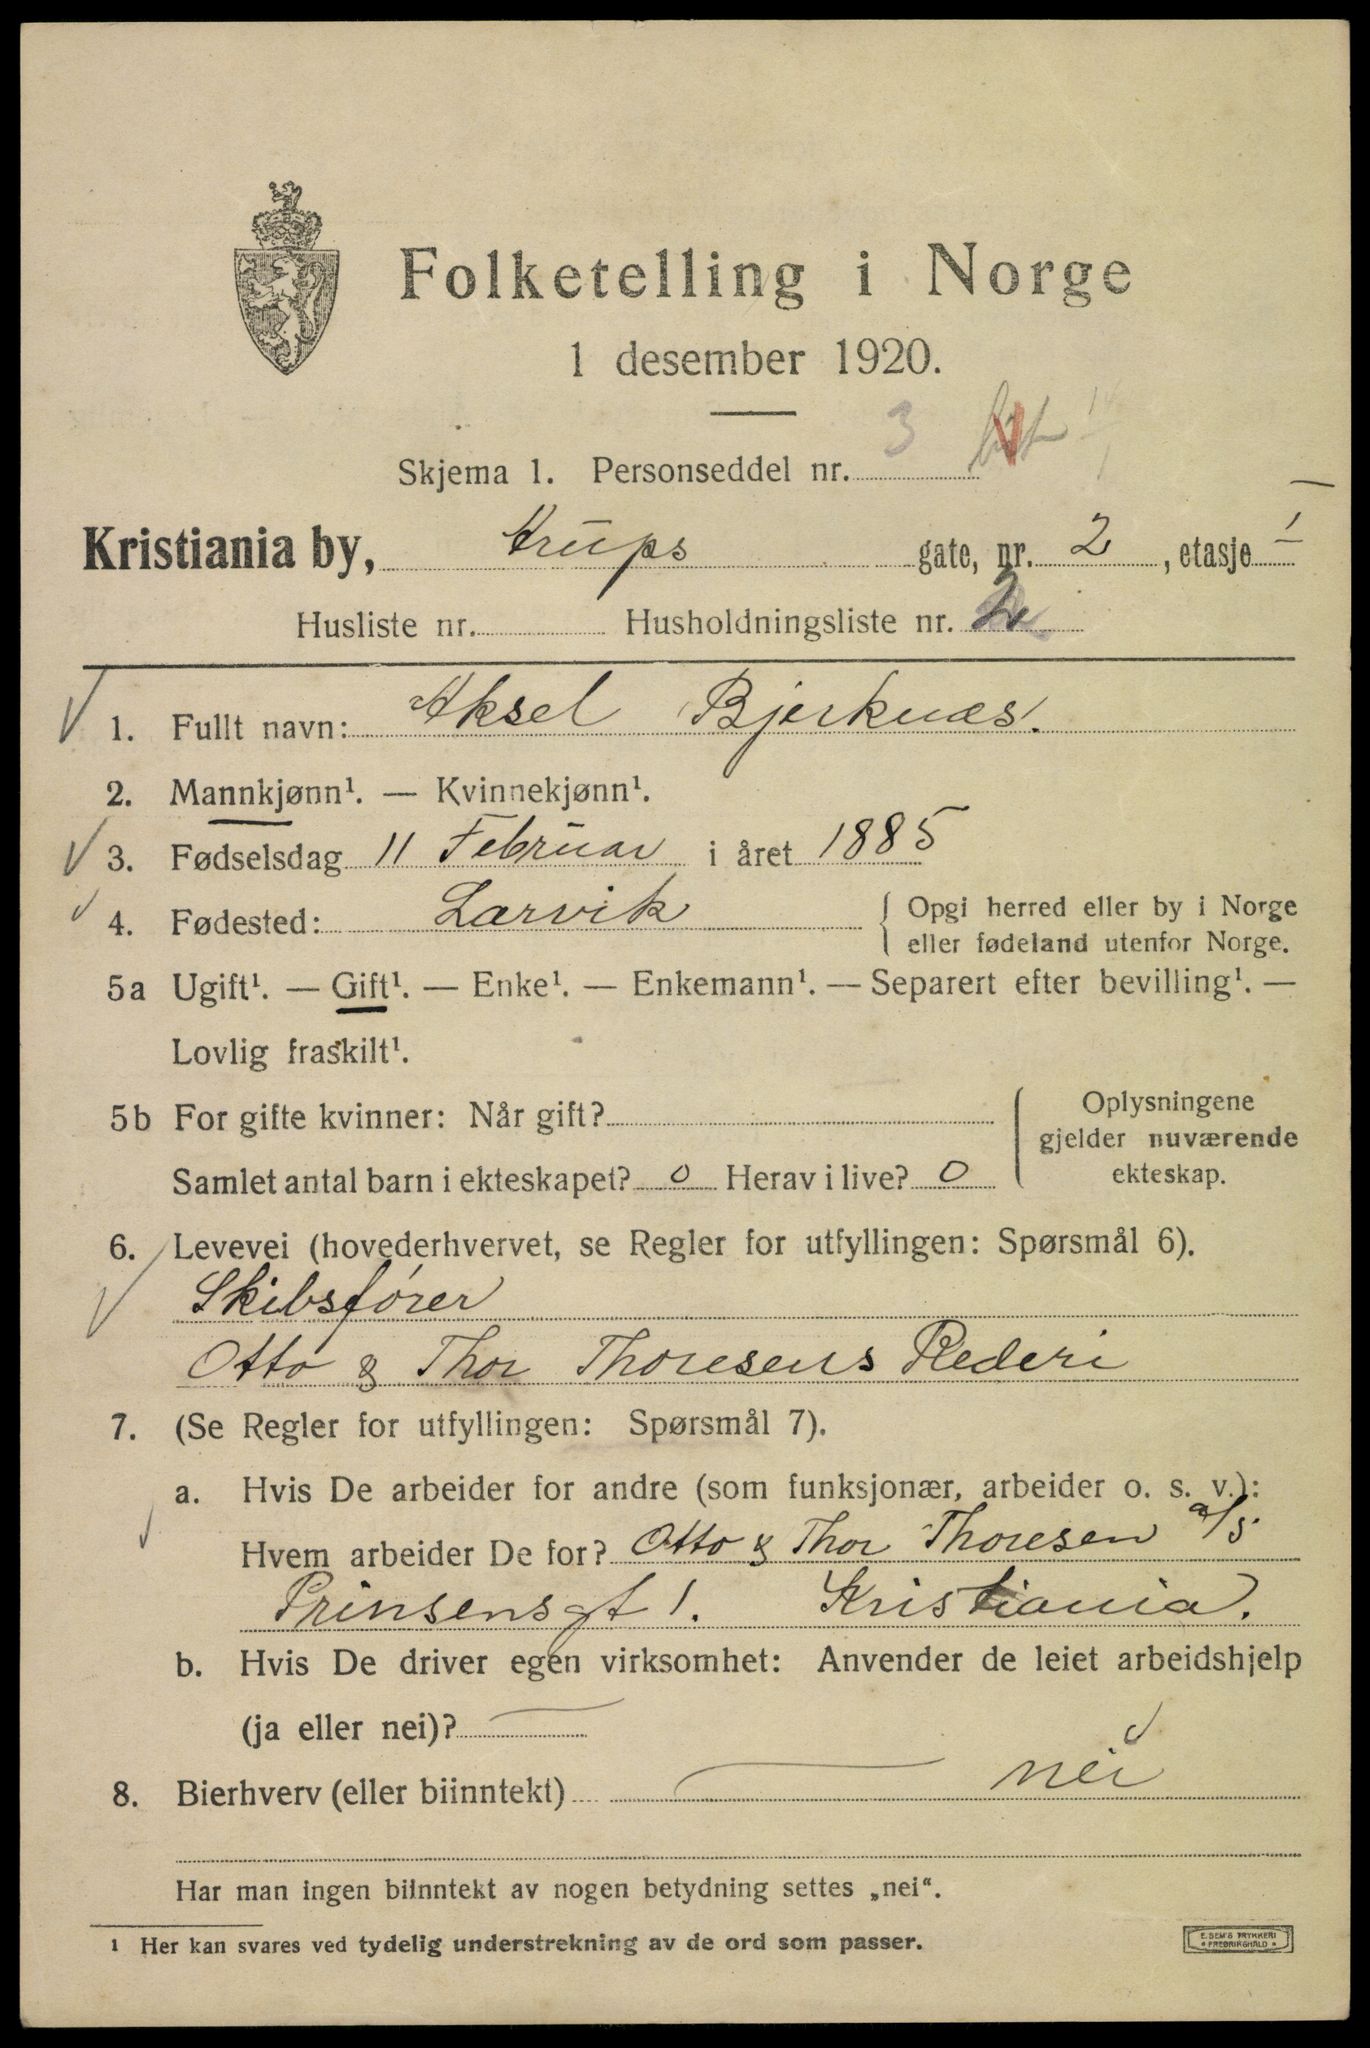 Folketelling i Norge
1 desember 1920.
Skjema 1. Personseddel nr. 3
Kristiania by, Krups gate, nr. 2, etasje I
Husliste nr. Husholdningsliste nr. 2
1. Fullt navn: Aksel Bjerknæs.
2. Mannkjønn¹. — Kvinnekjønn¹.
3. Fødselsdag 11 Februar i året 1885
4. Fødested: Larvik { Opgi herred eller by i Norge
eller fødeland utenfor Norge.
5a Ugift¹. — Gift¹. — Enke¹. — Enkemann¹. — Separert efter bevilling¹. —
Lovlig fraskilt¹.
5b For gifte kvinner: Når gift?
Samlet antal barn i ekteskapet? 0 Herav i live? 0
Oplysningene
gjelder nuværende
ekteskap.
6. Levevei (hovederhvervet, se Regler for utfyllingen: Spørsmål 6).
Skibsfører
Otto & Thor Thoresens Rederi
7. (Se Regler for utfyllingen: Spørsmål 7).
a. Hvis De arbeider for andre (som funksjonær, arbeider o. s. v.):
Hvem arbeider De for? Otto & Thor Thoresen a/s
Prinsensgt 1. Kristiania.
b. Hvis De driver egen virksomhet: Anvender de leiet arbeidshjelp
(ja eller nei)? —
8. Bierhverv (eller biinntekt) — nei
Har man ingen biinntekt av nogen betydning settes „nei“.
¹ Her kan svares ved tydelig understrekning av de ord som passer.
E. SEM'S TRYKKERI
• FREDRIKSHALD •